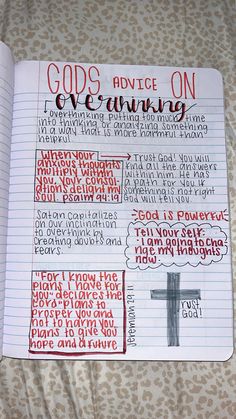 GODS ADVICE ON
overthinking
"overthinking putting too much time
into thinking or analizing something
in a way that is more harmful than
helpful.
When your
anxious thoughts
multiply within
you, your consol-
ations delight my
soul. psalm 94:19
Trust God! You will
find all the answers
within him. He has
a path for you if
something is not right
God will tell you.
Satan capitalizes
on our inclination
to overthink by
creating doubts and
fears.
God is powerful
Tell yourself:
"I am going to cha-
nge my thoughts
now.
"For I know the
plans I have for
you" declares the
Lord "plans to
prosper you and
not to harm you,
plans to give you
hope and a future
Jeremiah 29:11
Trust
God!